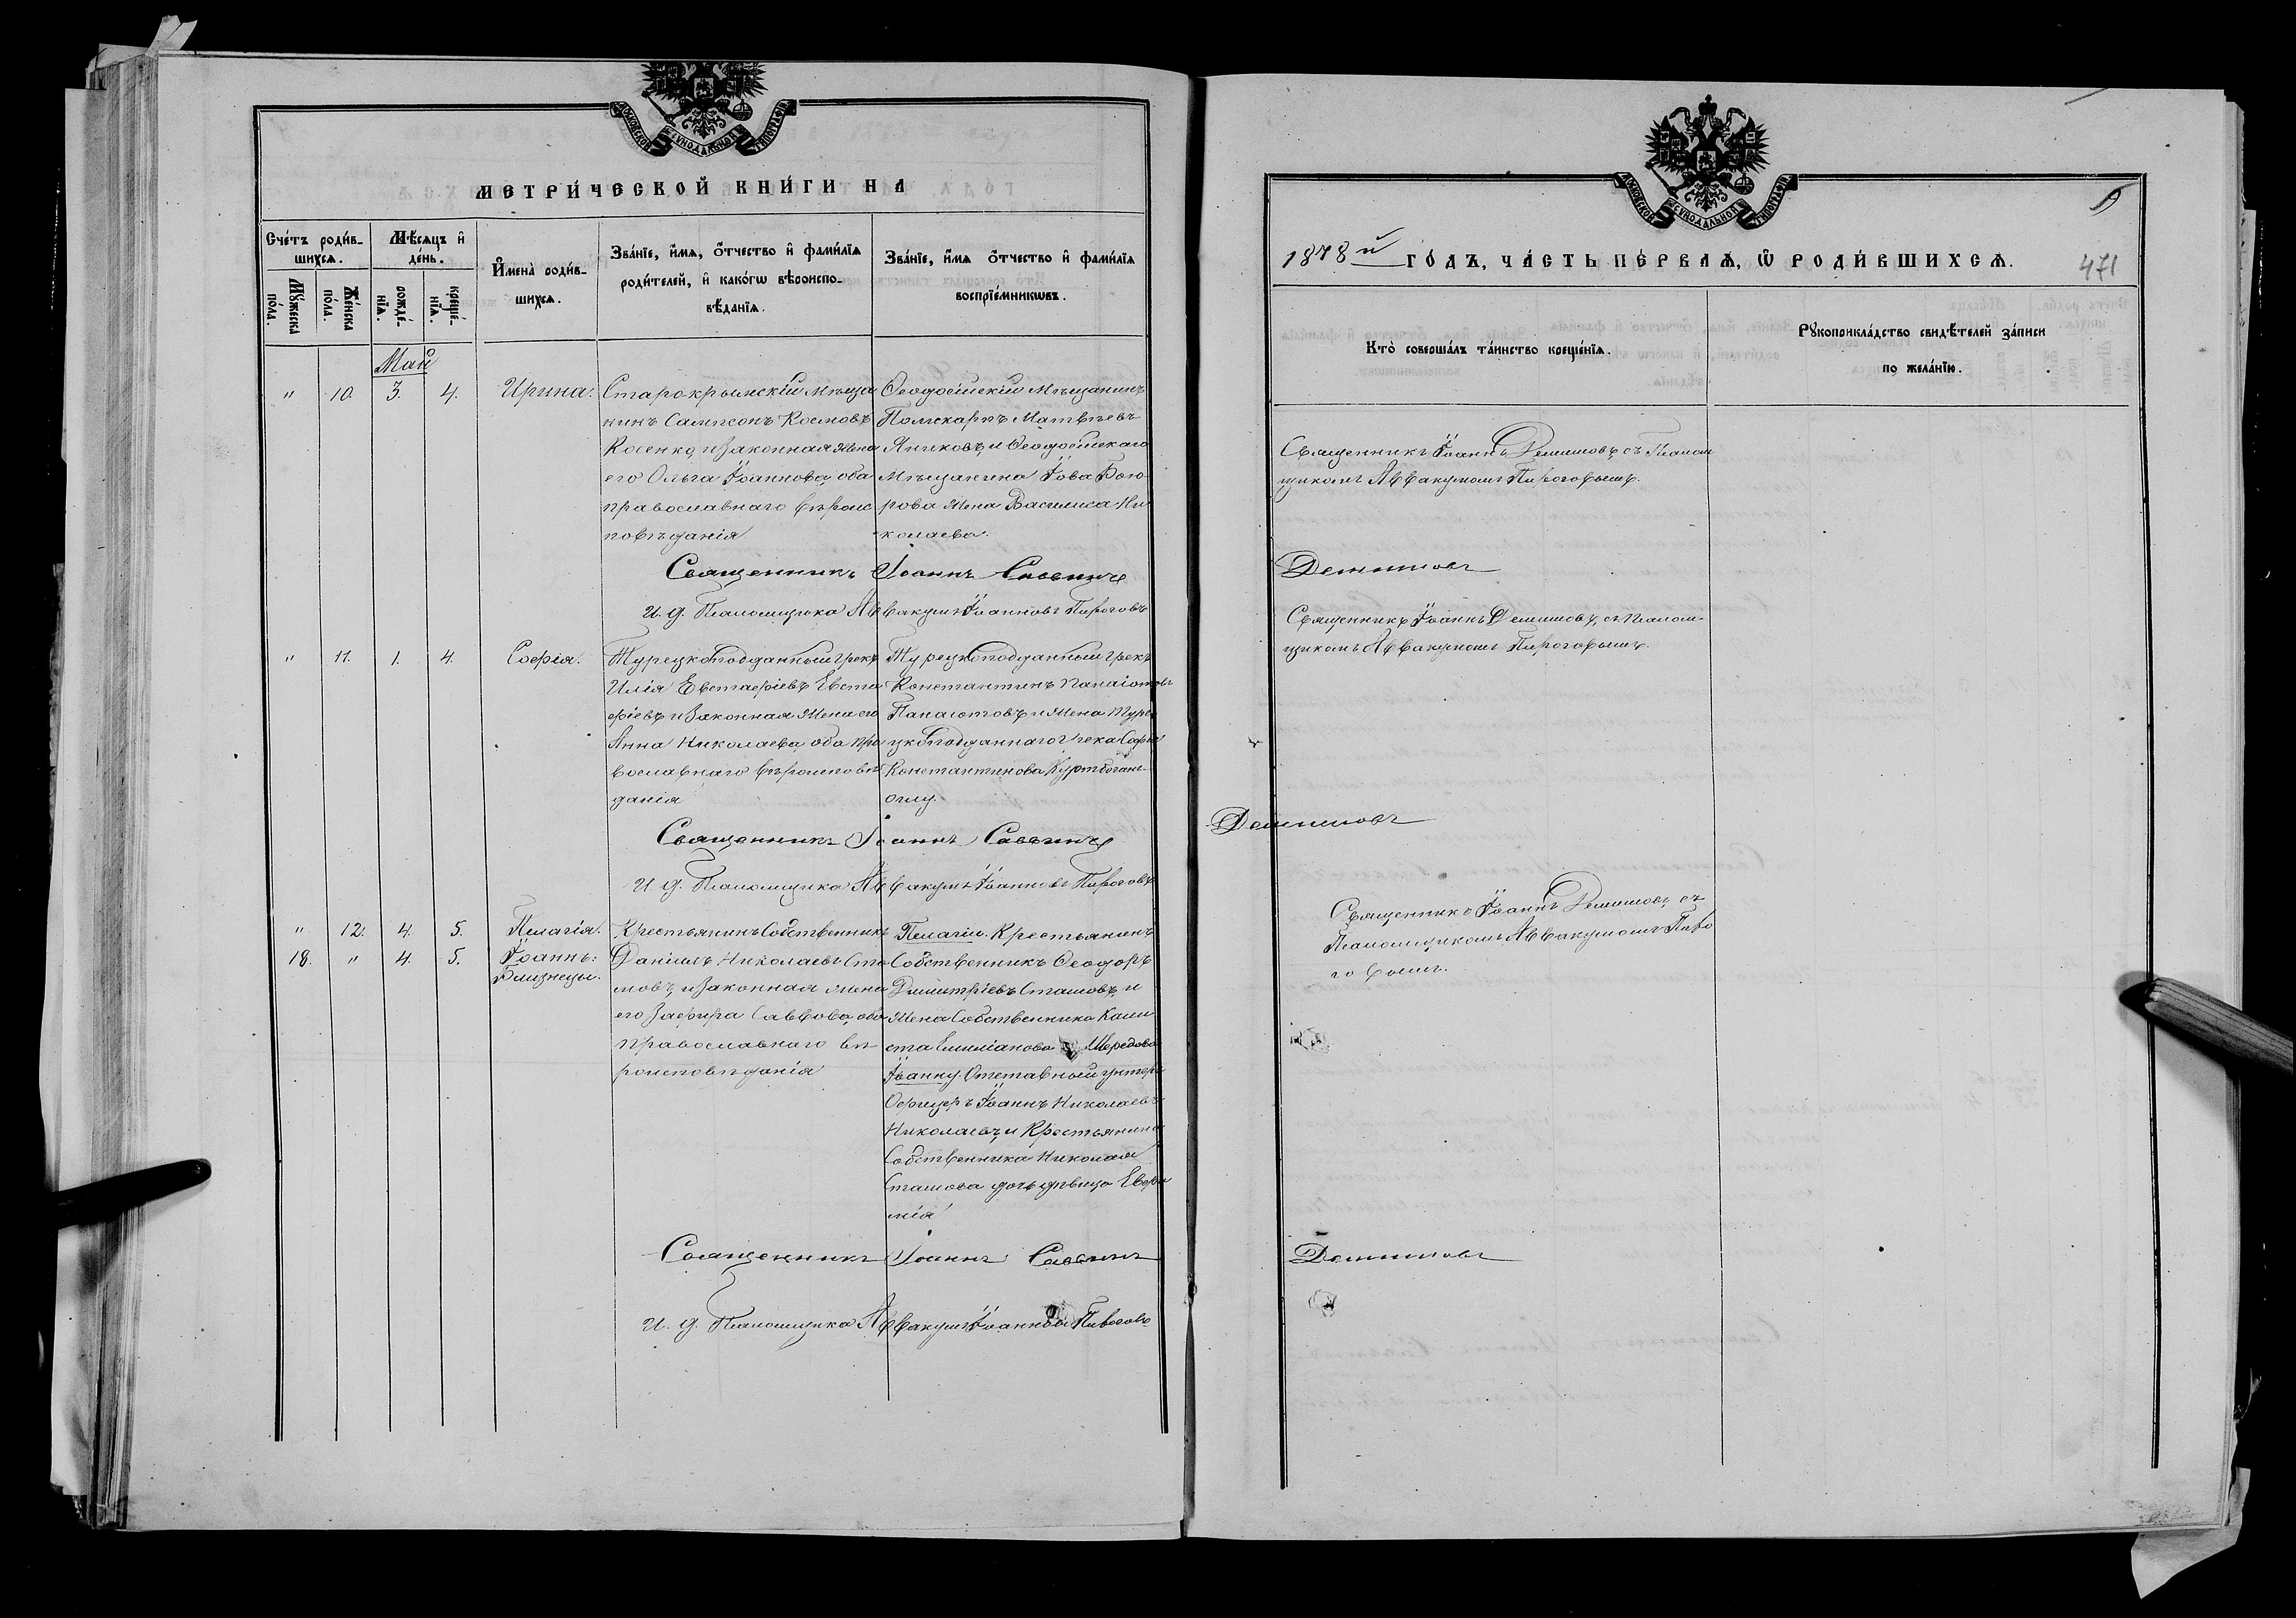 МОСКОВСКОЙ СѴНОДАЛЬНОЙ ТИПОГРАФІИ
МЕТРИ́ЧЕСКОЙ КНИ́ГИ НА
Сче́тъ роди́вшихсѧ.
Мѹ́жеска по́ла.
Же́нска по́ла.
Мѣ́сѧцъ и҆ де́нь.
рожде́нїѧ.
креще́нїѧ.
И҆мена̀ роди́вшихсѧ.
Зва́нїе, и҆́мѧ, ѻ҆́тчество и҆ фами́лїѧ
роди́телей, и҆ како́гѡ вѣроиспо-
вѣ́данїѧ.
Зва́нїе, и҆́мѧ ѻ҆́тчество и҆ фами́лїѧ
воспрїе́мникѡвъ.
Май
" 10. 3. 4. Ирина.
Старокрымскій мѣща
нинъ Сампсонъ Космовъ
Косенко, и законная жена
его Ольга Іоаннова, оба
православнаго вѣроис
повѣданія
Ѳеодосійскій мѣщанинъ
Поликарпъ Матвѣевъ
Яниковъ, и Ѳеодосійскаго
мѣщанина Іова Бою
рова жена Василиса Ни
колаева.
Священникъ Іоаннъ Саввинъ
И. д. Псаломщика Аввакумъ Іоанновъ Пироговъ
" 11. 1. 4. Софія.
Турецкоподданный грекъ
Илія Евстафіевъ Евста
фіевъ и законная жена его
Анна Николаева, оба пра
вославнаго вѣроисповѣ
данія
Турецкоподданный грекъ
Константинъ Панаіотовъ
Панаіотовъ и жена Туре
цкоподданнаго грека Софія
Константинова Куртбогаиъ-
оглу.
Священникъ Іоаннъ Саввинъ
И. д. Псаломщика Аввакумъ Іоанновъ Пироговъ
" 12. 4. 5. Пелагія.
18. " 4. 5. Іоаннъ:
Близнецы.
Крестьянинъ Собственникъ
Даніилъ Николаевъ Ста
мовъ, и законная жена
его Зафира Саввова, оба
православнаго вѣ
роисповѣданія
Пелагіи. Крестьянинъ
Собственникъ Ѳеодоръ
Димитріевъ Стамовъ, и
жена Собственника Кали
ста Емиліанова
Іоанну. Отставный унтеръ
Офицеръ Іоаннъ Николаевъ
Николаевъ, и Крестьянина
Собственника Николая
Стамова дочь дѣвица Евфи
мія
Священникъ Іоаннъ Саввинъ
И. д. Псаломщика Аввакумъ Іоанновъ Пироговъ
МОСКОВСКОЙ СѴНОДАЛЬНОЙ ТИПОГРАФІИ
1878й ГО́ДЪ, ЧА́СТЬ ПЕ́РВАѦ, Ѡ҆ РОДИ́ВШИХСѦ.
471
Кто̀ соверша́лъ та́инство креще́нїѧ.
Рѹкоприкла́дство свидѣ́телей за́писи
по жела́нїю.
Священникъ Іоаннъ Демишовъ, съ Псалом
щикомъ Аввакумомъ Пироговымъ.
Демишовъ
Священникъ Іоаннъ Демишовъ, съ Псалом-
щикомъ Аввакумомъ Пироговымъ.
Демишовъ
Священникъ Іоаннъ Демишовъ, съ
Псаломщикомъ Аввакумомъ Пиро
говымъ.
Демишовъ